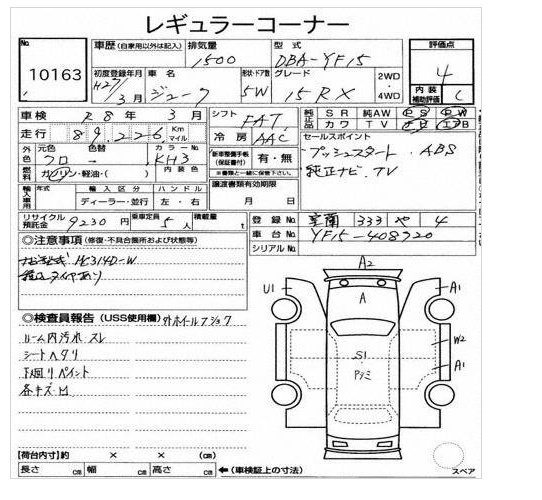 レギュラーコーナー
No. 10163
車歴 (自家用以外は記入) 排気量 1500 型式 DBA-YF15
評価点 4
内装補助評価 C
初度登録年月 H27年3月 車名 ジューク 形状・ドア数 5W グレード 15RX 2WD 4WD
車検 R8年3月 シフト FAT 純正品 SR 純AW PS PW
走行 89,226 Km マイル 冷房 AAC カワ TV エアB
外色 元色 クロ 色替 → カラーNo. KH3
新車整備手帳(保証書付) 有・無
※書類と一緒に保管下さい。
セールスポイント
プッシュスタート. ABS
純正ナビ. TV
燃料 ガソリン・軽油・( ) 内装色
輸入車用 年式 輸入区分 ディーラー・並行 ハンドル 左・右
譲渡書類有効期限 月 日
リサイクル預託金 9230円 乗車定員 5人 積載量 t
登録No. 室蘭 333 や 4
車台No. YF15-408920
シリアルNo.
◎注意事項 (修復・不具合箇所および状態等)
ナビ型式 HC314D-W
積込タイヤあり
◎検査員報告 (USS使用欄) 外ホイールフショク
ルーム内汚れ スレ
シートヘタリ
下廻りペイント
各キズ・凹
A2
U1
A
A1
W2
S1
A1
スペア
【荷台内寸】約 × × (cm)
長さ cm 幅 cm 高さ cm ←(車検証上の寸法)